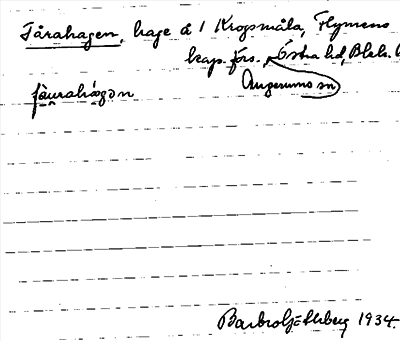 Fårahagen, hage å 1 Krogsmåla, Flymens
kap. förs., Östra hd, Blek. l
Augerums sn
fåurahá̤gən
Barbro Götheberg 1934.